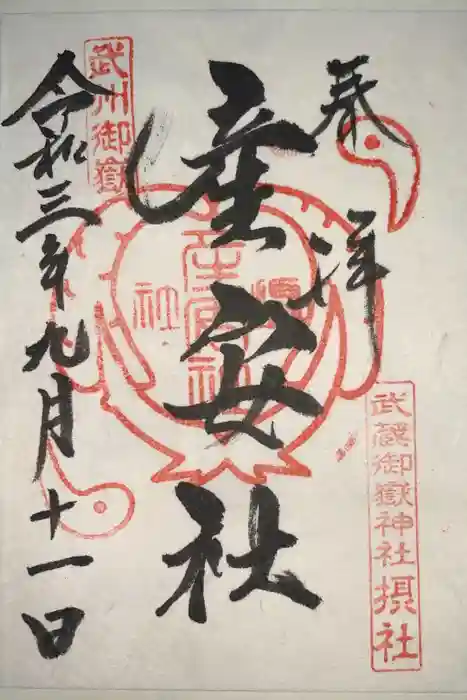 奉拝
武蔵御嶽神社摂社
産安社
産安社
摂社
武州御嶽
令和三年九月十一日